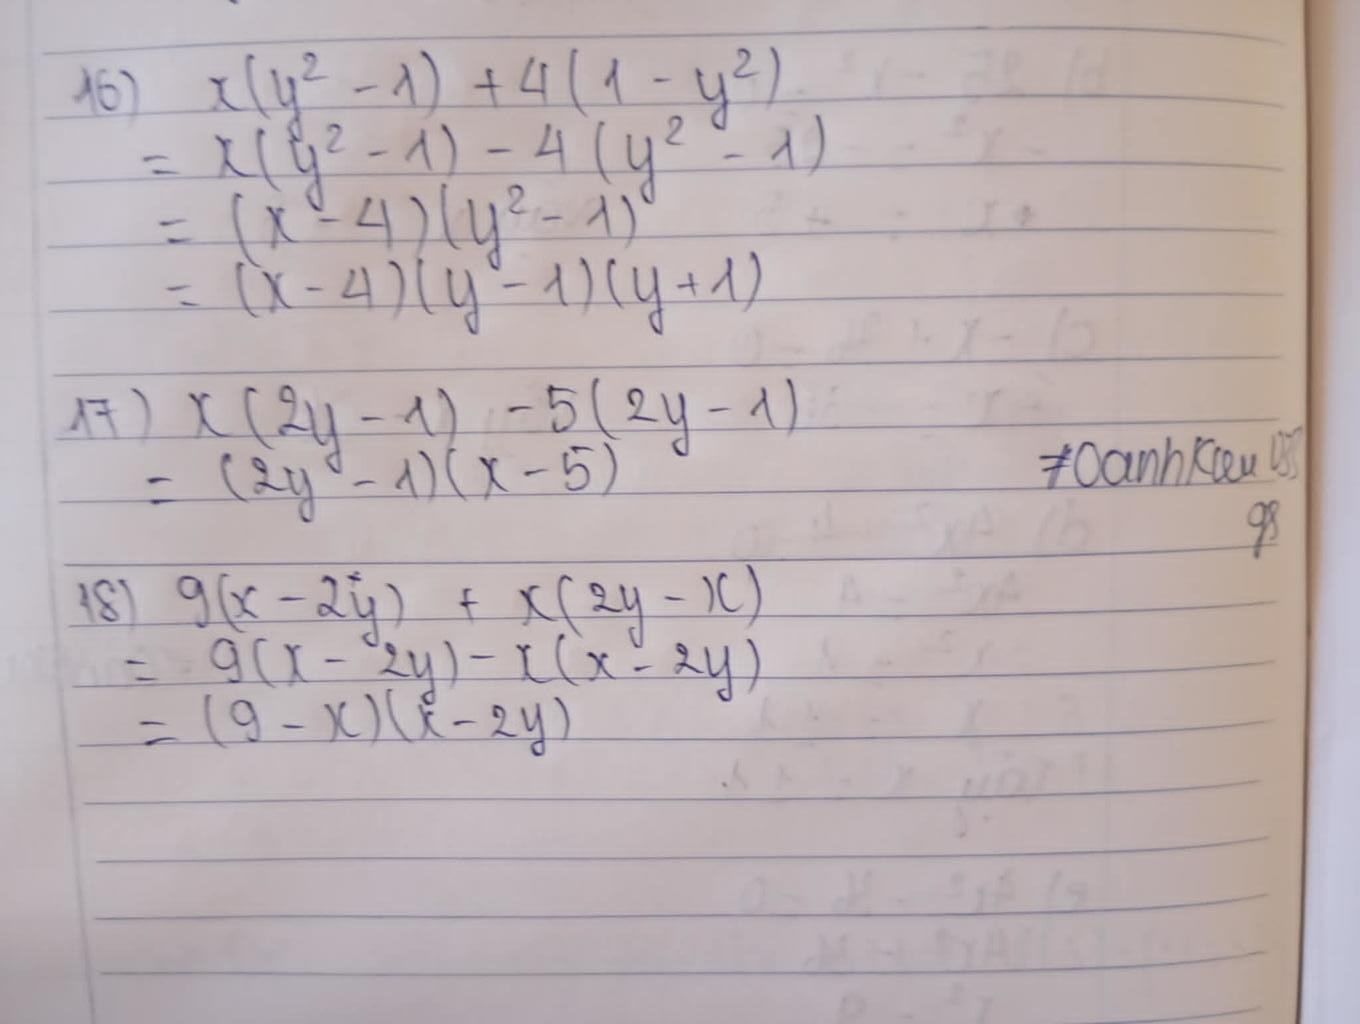 16) x(y² - 1) + 4(1 - y²)
= x(y² - 1) - 4(y² - 1)
= (x - 4)(y² - 1)
= (x - 4)(y - 1)(y + 1)
17) x(2y - 1) - 5(2y - 1)
= (2y - 1)(x - 5)
18) 9(x - 2y) + x(2y - x)
= 9(x - 2y) - x(x - 2y)
= (9 - x)(x - 2y)